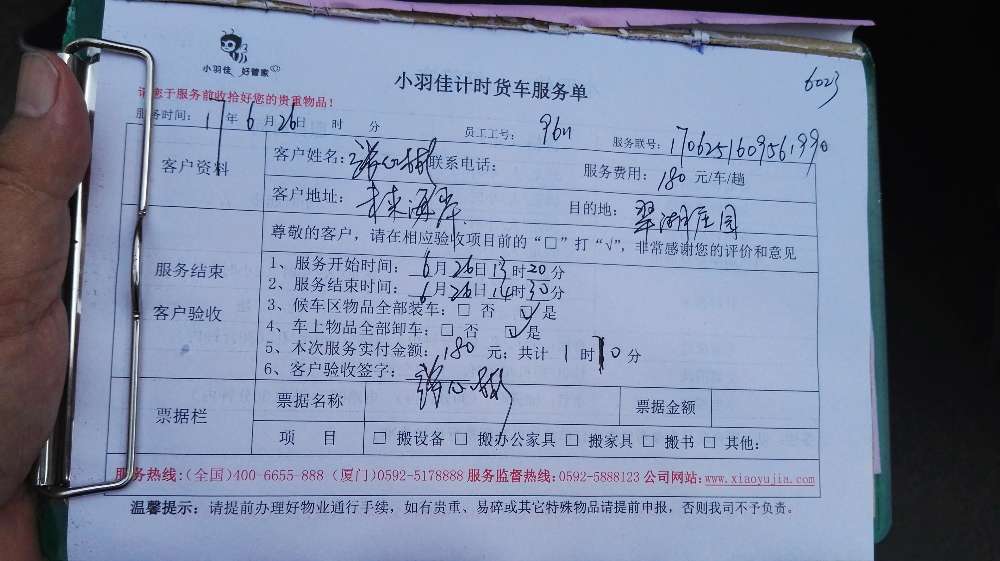 小羽佳 好管家
小羽佳计时货车服务单
6023
请您于服务前收拾好您的贵重物品!
服务时间: 17年 6月 26日 时 分 员工工号: 服务联号:
客户资料 客户姓名: 联系电话: 服务费用: 180 元/车/趟
客户地址: 未来海岸 目的地: 翠湖庄园
尊敬的客户, 请在相应验收项目前的“□”打“√”, 非常感谢您的评价和意见
服务结束
客户验收
1、服务开始时间: 6月 26日 13时 20分
2、服务结束时间: 6月 26日 14时 30分
3、候车区物品全部装车: □ 否 ☑ 是
4、车上物品全部卸车: □ 否 ☑ 是
5、本次服务实付金额: 180 元; 共计 1 时 10 分
6、客户验收签字:
票据栏 票据名称 票据金额
项 目 □ 搬设备 □ 搬办公家具 □ 搬家具 □ 搬书 □ 其他:
服务热线:(全国)400-6655-888 (厦门)0592-5178888 服务监督热线:0592-5888123 公司网站:www.xiaoyujia.com
温馨提示: 请提前办理好物业通行手续, 如有贵重、易碎或其它特殊物品请提前申报, 否则我司不予负责。